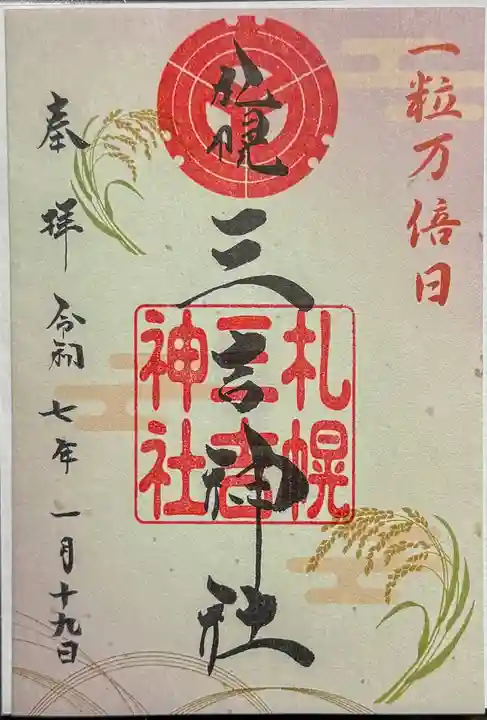 一粒万倍日
札幌
三吉神社
札幌
三吉
神社
奉拝 令和七年一月十九日